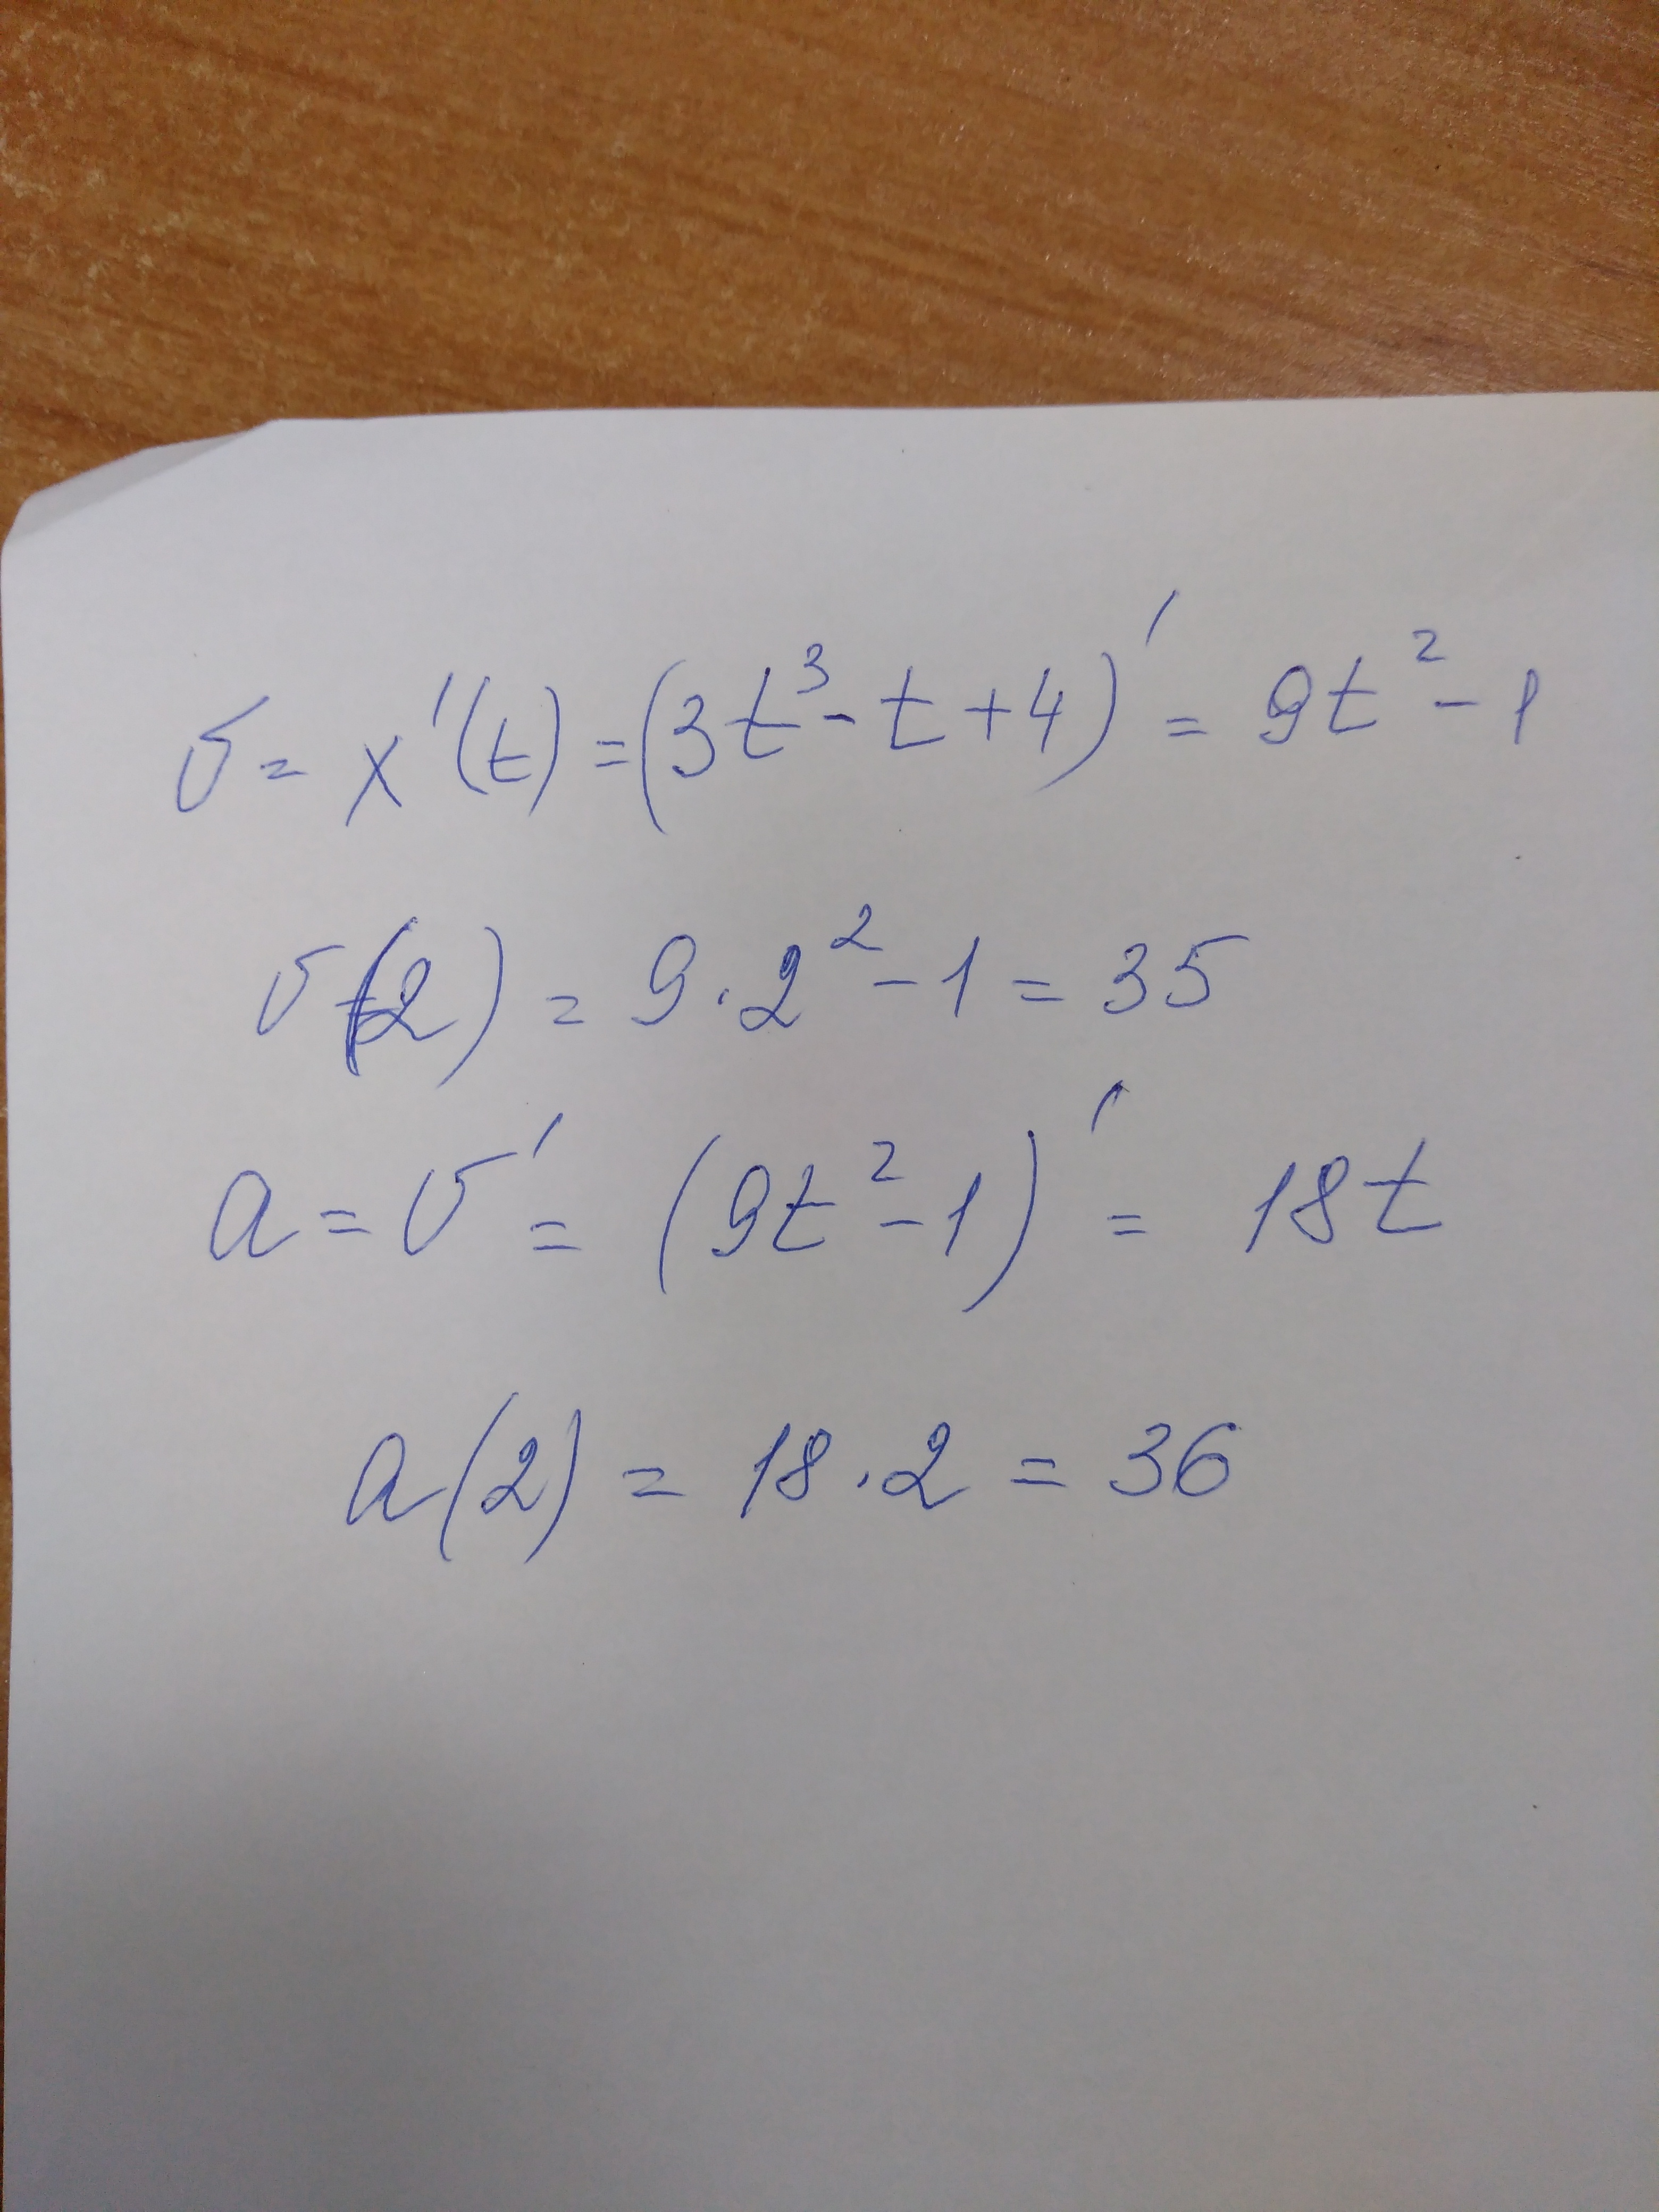 v = x'(t) = (3t³ - t + 4)' = 9t² - 1
v(2) = 9 · 2² - 1 = 35
a = v' = (9t² - 1)' = 18t
a(2) = 18 · 2 = 36